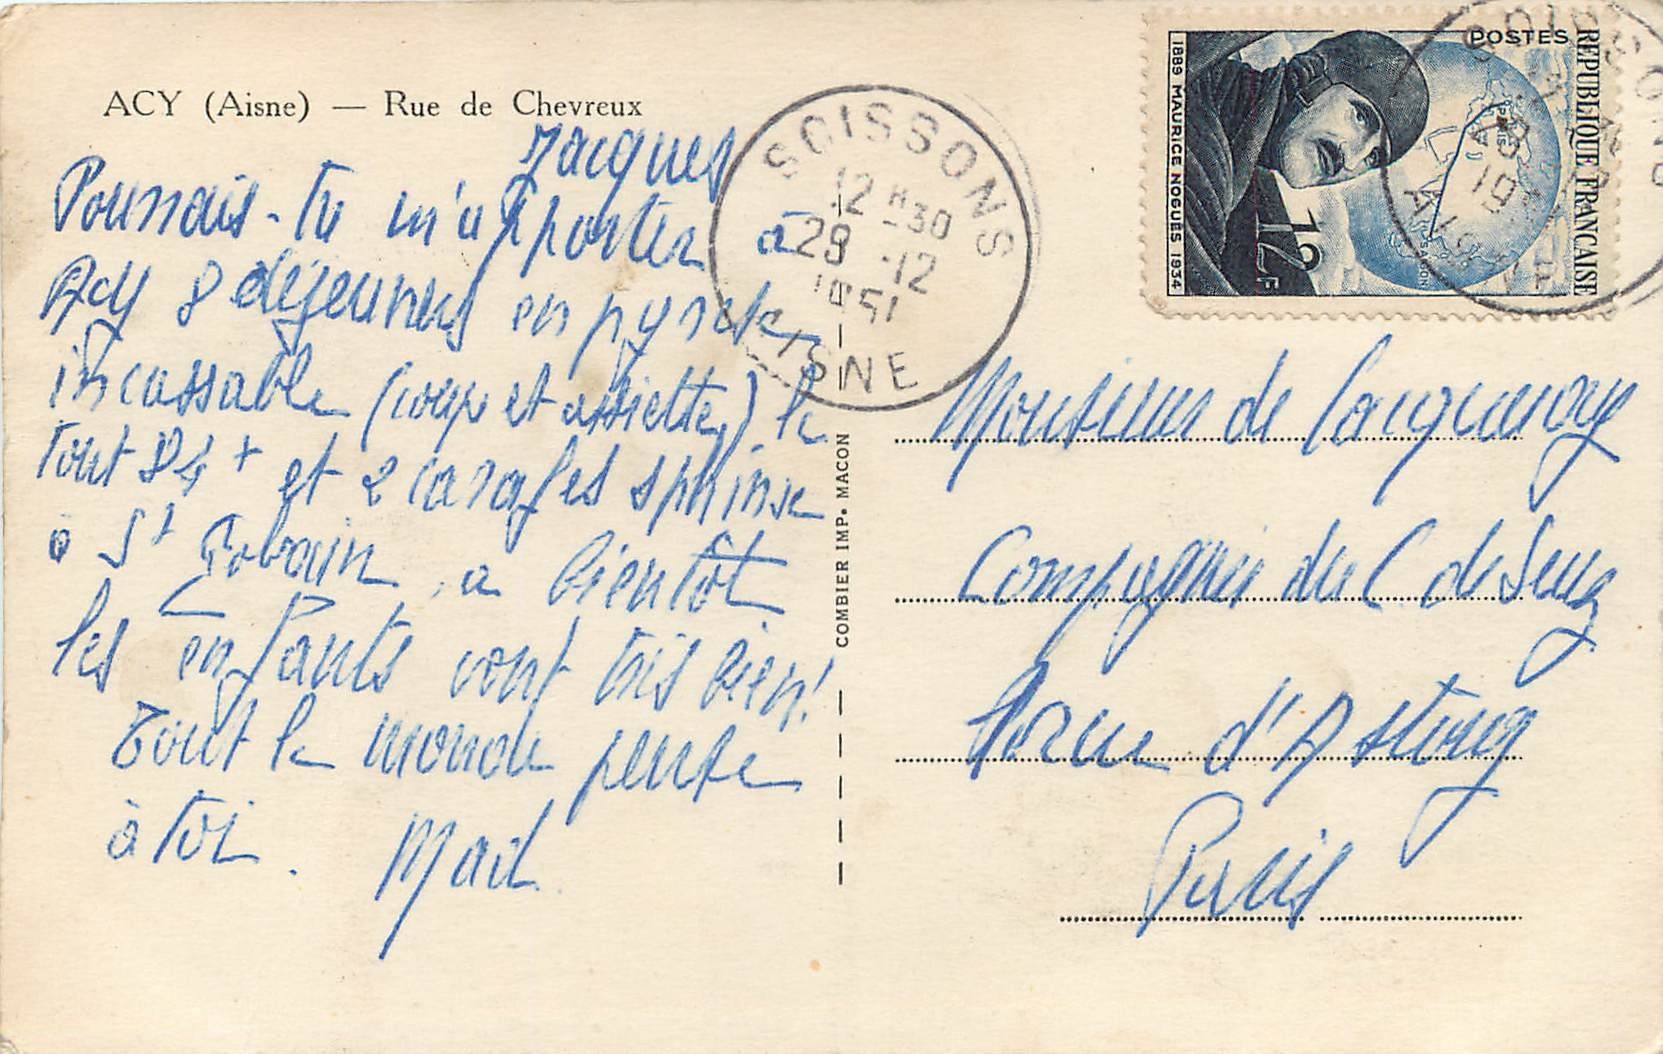 ACY (Aisne) — Rue de Chevreux
Jacques
Pourrais-tu m'apporter à
Acy 8 déjeuners en pyrex
incassable (coup et assiette) le
tout 84 + et 2 carafes sphinx
à St Gobain, a bientôt
les enfants vont très bien!
Tout le monde pense
à toi. Mad
COMBIER IMP. MACON
SOISSONS
12 H 30
28 -12
1951
AISNE
POSTES
REPUBLIQUE FRANÇAISE
1889 MAURICE NOGUES 1934
PARIS
SAIGON
12F
SOISSONS
AISNE
Monsieur de Jacquenoye
Compagnie du C de Suez
1 rue d'Astorg
Paris